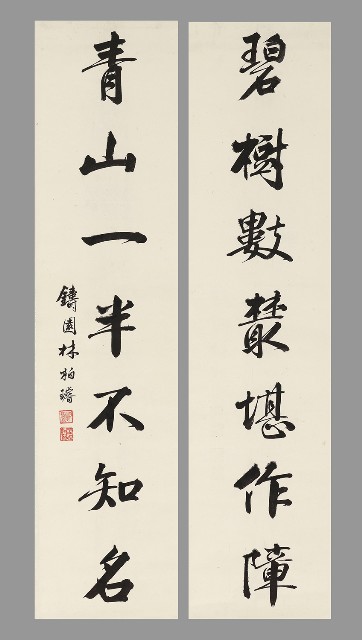 碧樹數叢堪作障
青山一半不知名
鑄園林柏壽